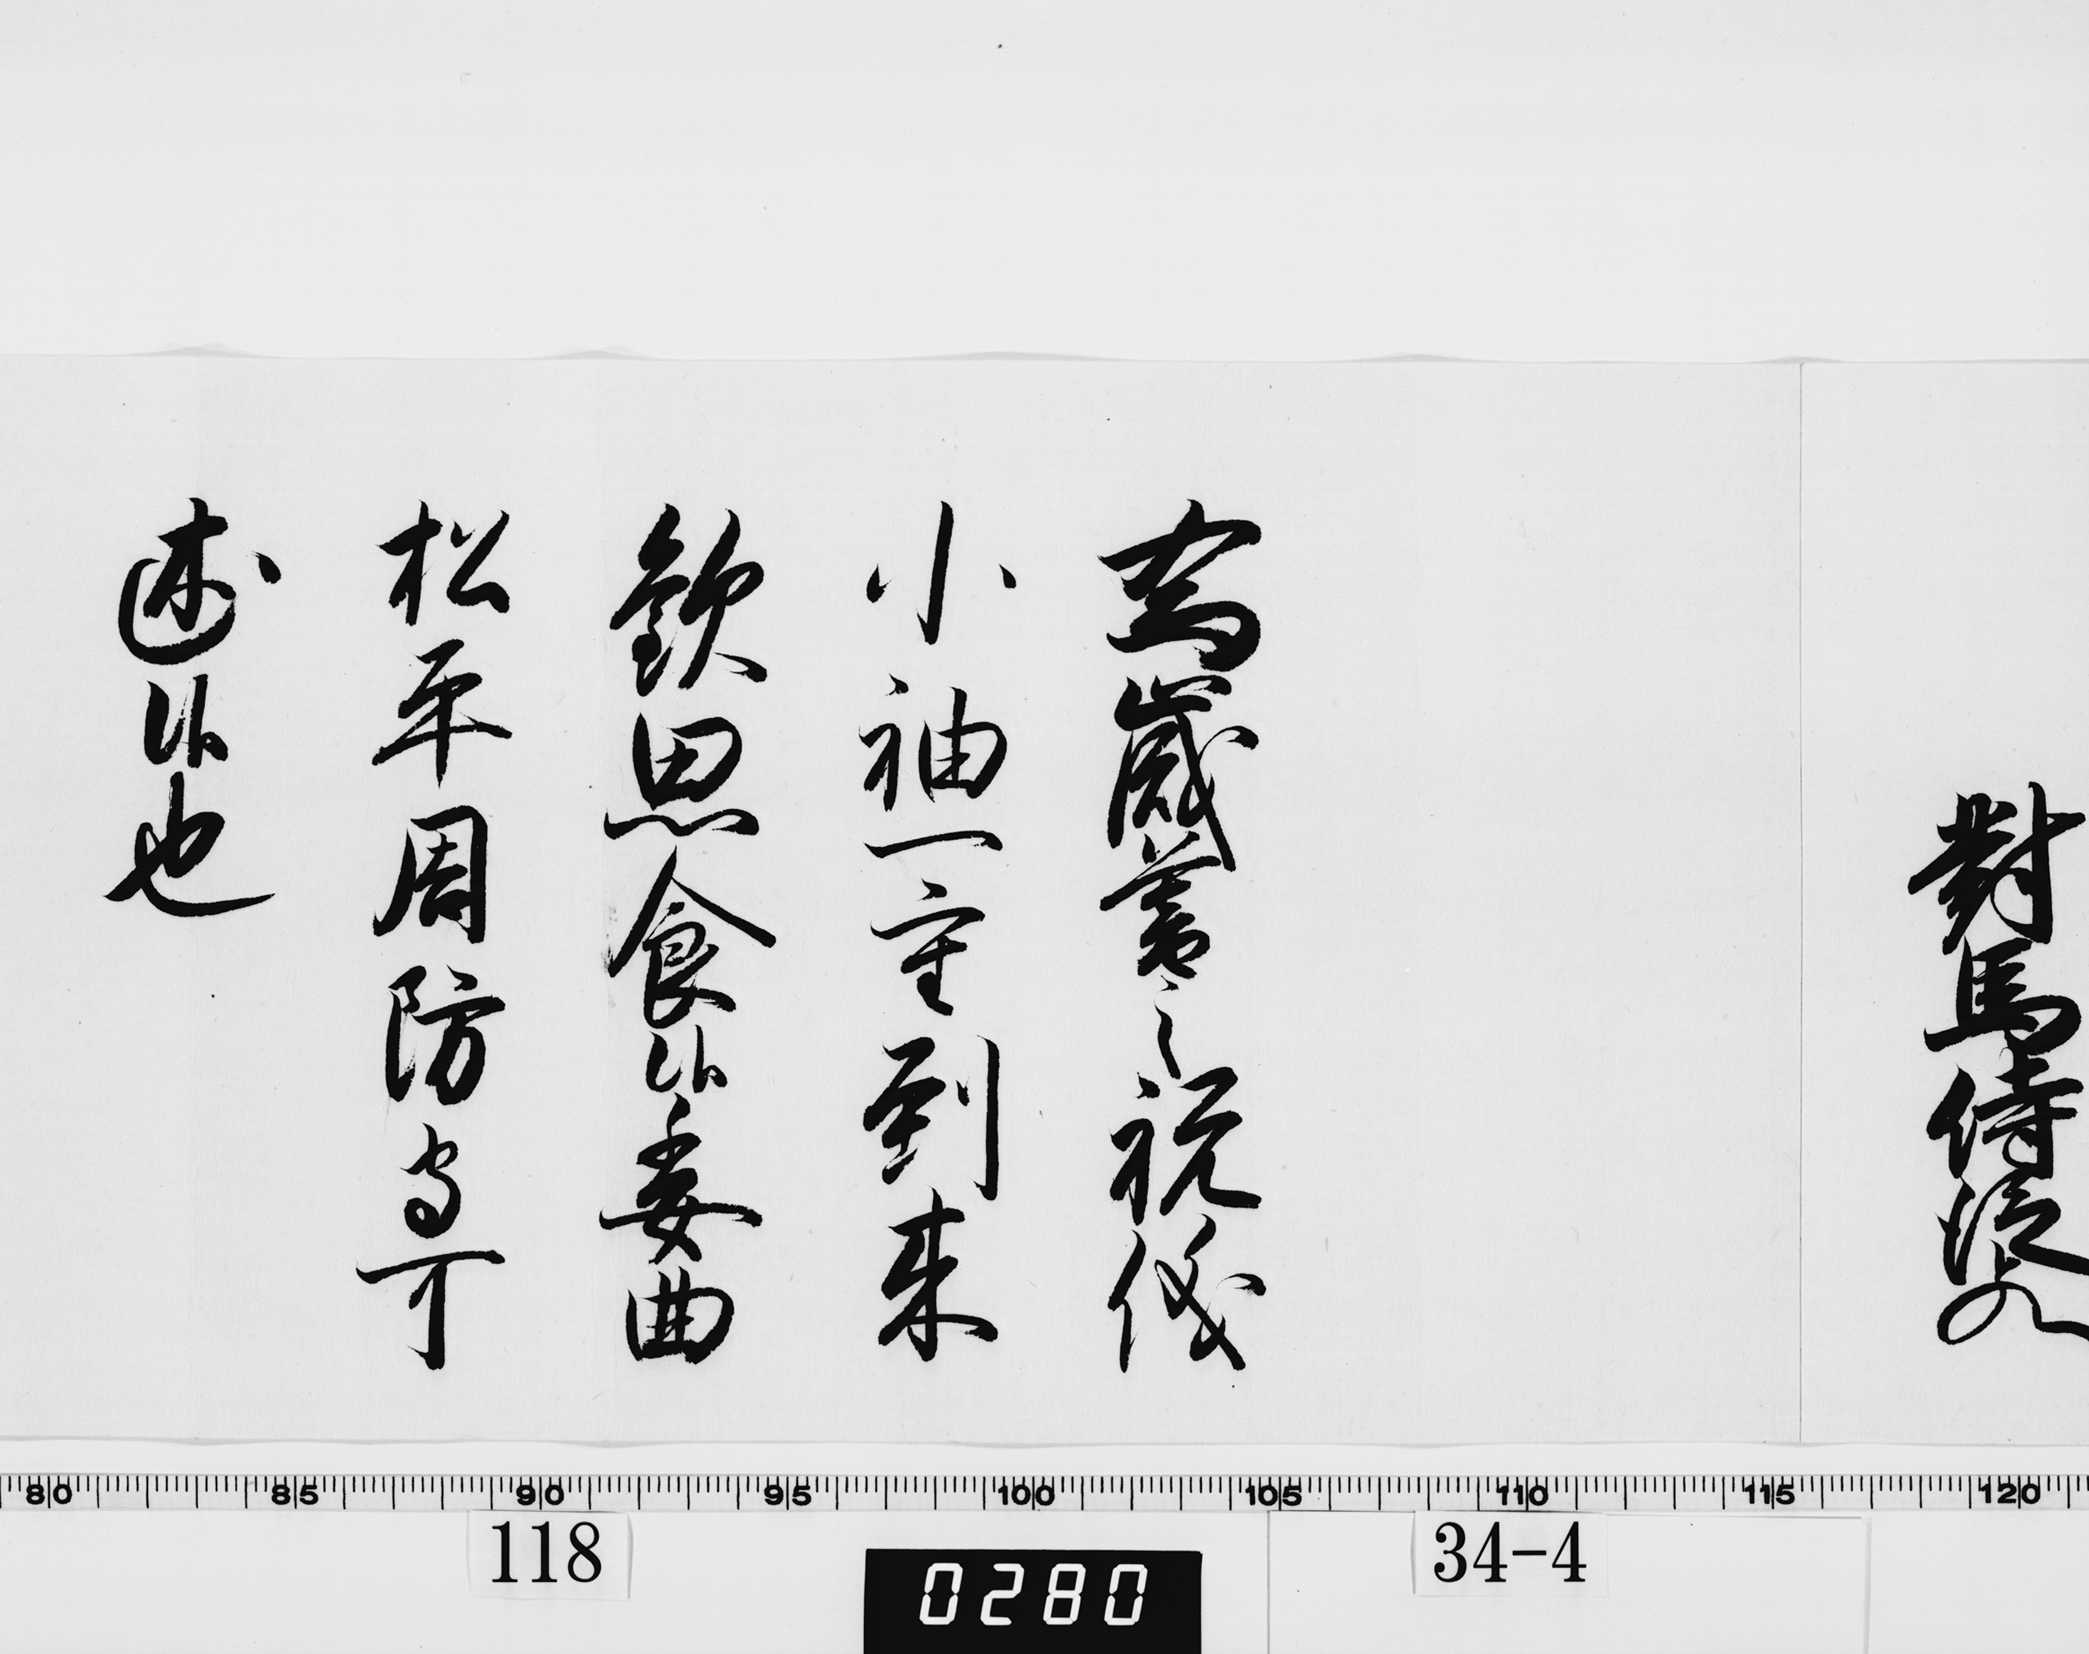 對馬侍従
為歳暮之祝儀
小袖一重到来
歓思食候委曲
松平周防守可
述候也
80 85 90 95 100 105 110 115 120
118
0280
34-4